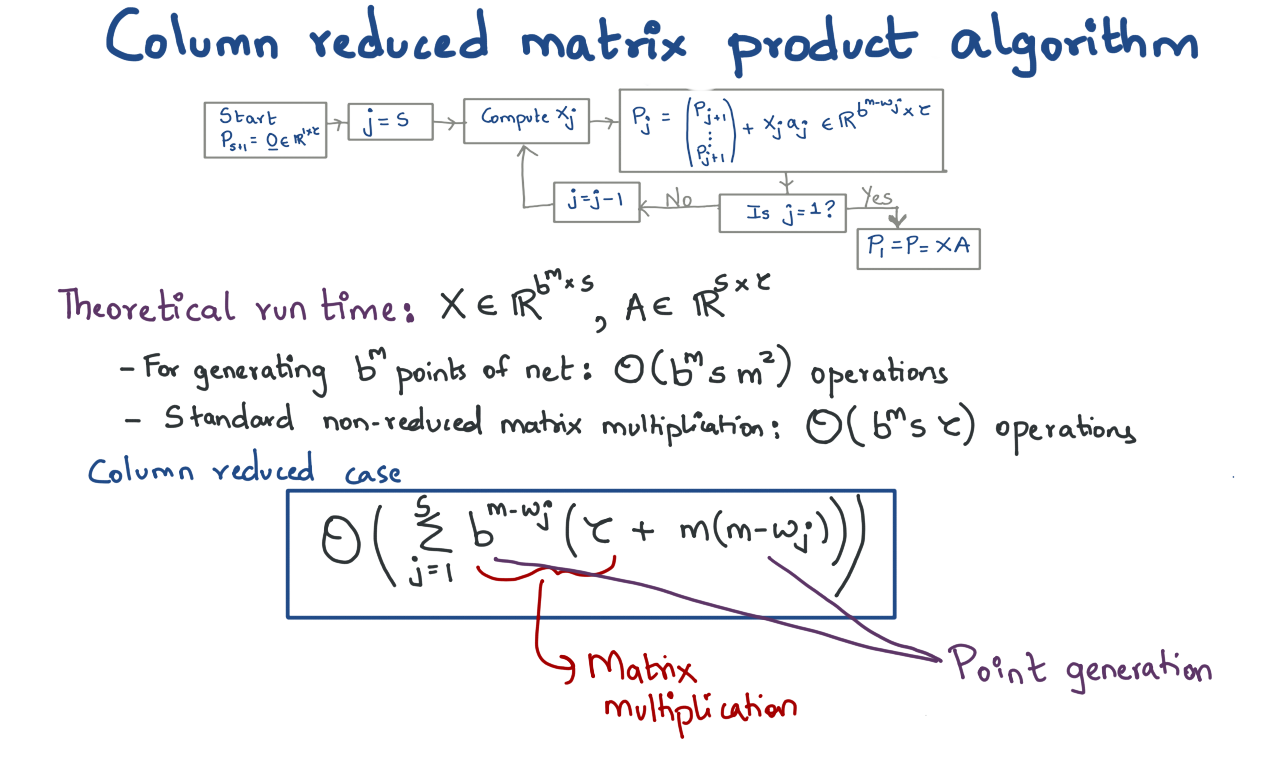 Column reduced matrix product algorithm
Start
P_{s+1} = 0 ∈ ℝ^{1×τ}
j = s
Compute X_j
P_j = (P_{j+1} ⋮ P_{j+1}) + X_j a_j ∈ ℝ^{b^{m-w_j} × τ}
j = j-1
No
Is j = 1?
Yes
P_1 = P = XA
Theoretical run time: X ∈ ℝ^{b^m × s}, A ∈ ℝ^{s × τ}
- For generating b^m points of net: O(b^m s m^2) operations
- Standard non-reduced matrix multiplication: O(b^m s τ) operations
Column reduced case
O(∑_{j=1}^{s} b^{m-w_j} (τ + m(m-w_j)))
Matrix
multiplication
Point generation